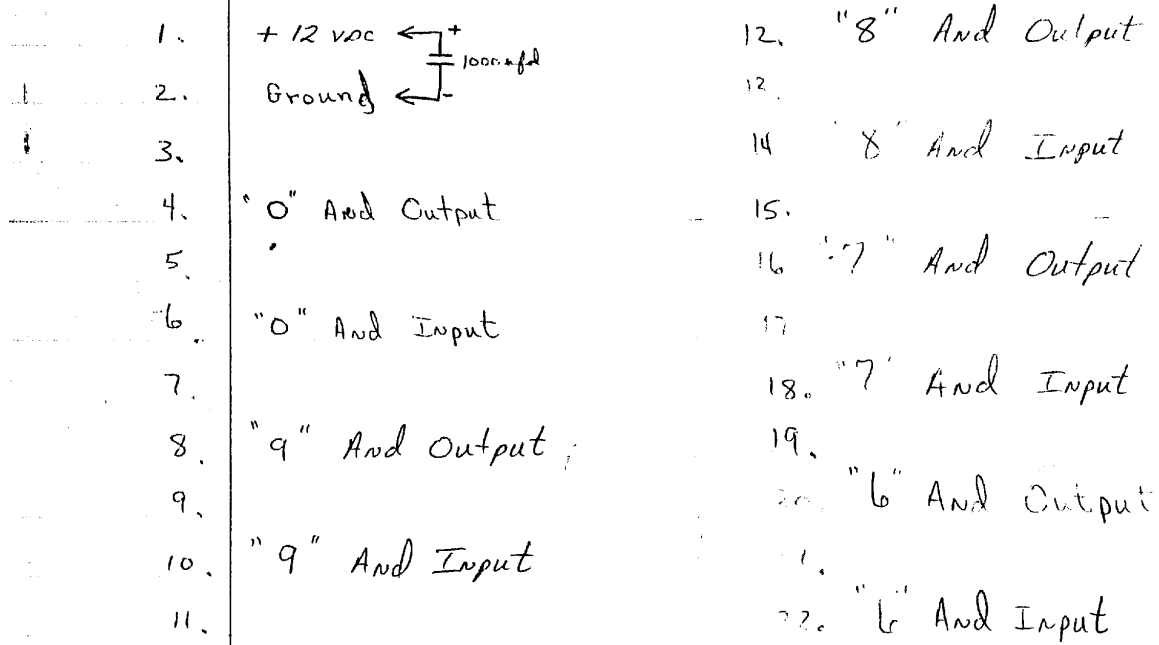 1. + 12 VDC +
1000 mfd
2. Ground -
3.
4. "O" And Output
5.
6. "O" And Input
7.
8. "9" And Output
9.
10. "9" And Input
11.
12. "8" And Output
12.
14 "8" And Input
15.
16 "7" And Output
17
18. "7" And Input
19.
20. "6" And Output
1.
22. "6" And Input